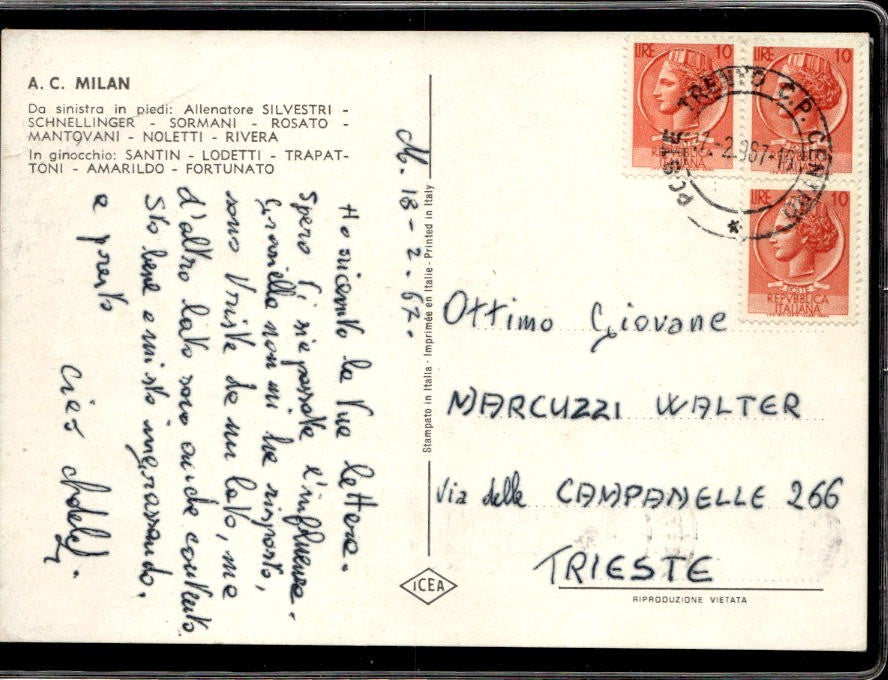 A. C. MILAN
Da sinistra in piedi: Allenatore SILVESTRI -
SCHNELLINGER - SORMANI - ROSATO -
MANTOVANI - NOLETTI - RIVERA
In ginocchio: SANTIN - LODETTI - TRAPAT-
TONI - AMARILDO - FORTUNATO
18-2-67.
Ho ricevuto la tua lettera.
Spero ti sia passata l'influenza.
Graziella non mi ha risposto,
sono triste da un lato, ma
d'altro lato sono anche contento.
Sto bene e mi sto ingrassando.
a presto
ciao
Stampato in Italia - Imprimée en Italie - Printed in Italy
ICEA
LIRE 10
REPVBBLICA
ITALIANA
LIRE 10
LIRE 10
POSTE
REPVBBLICA
ITALIANA
POSTE TRENTO C.P. CENTRO
Ottimo Giovane
MARCUZZI WALTER
Via delle CAMPANELLE 266
TRIESTE
RIPRODUZIONE VIETATA